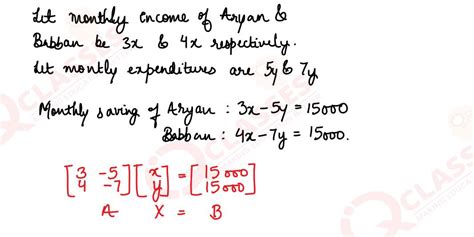 Let monthly income of Aryan &
Babban be 3x & 4x respectively.
Let montly expenditures are 5y & 7y
Monthly saving of Aryan : 3x-5y = 15000
Babban : 4x-7y = 15000.
[3 -5] [x] = [15000]
[4 -7] [y] [15000]
A X = B
CLASSES